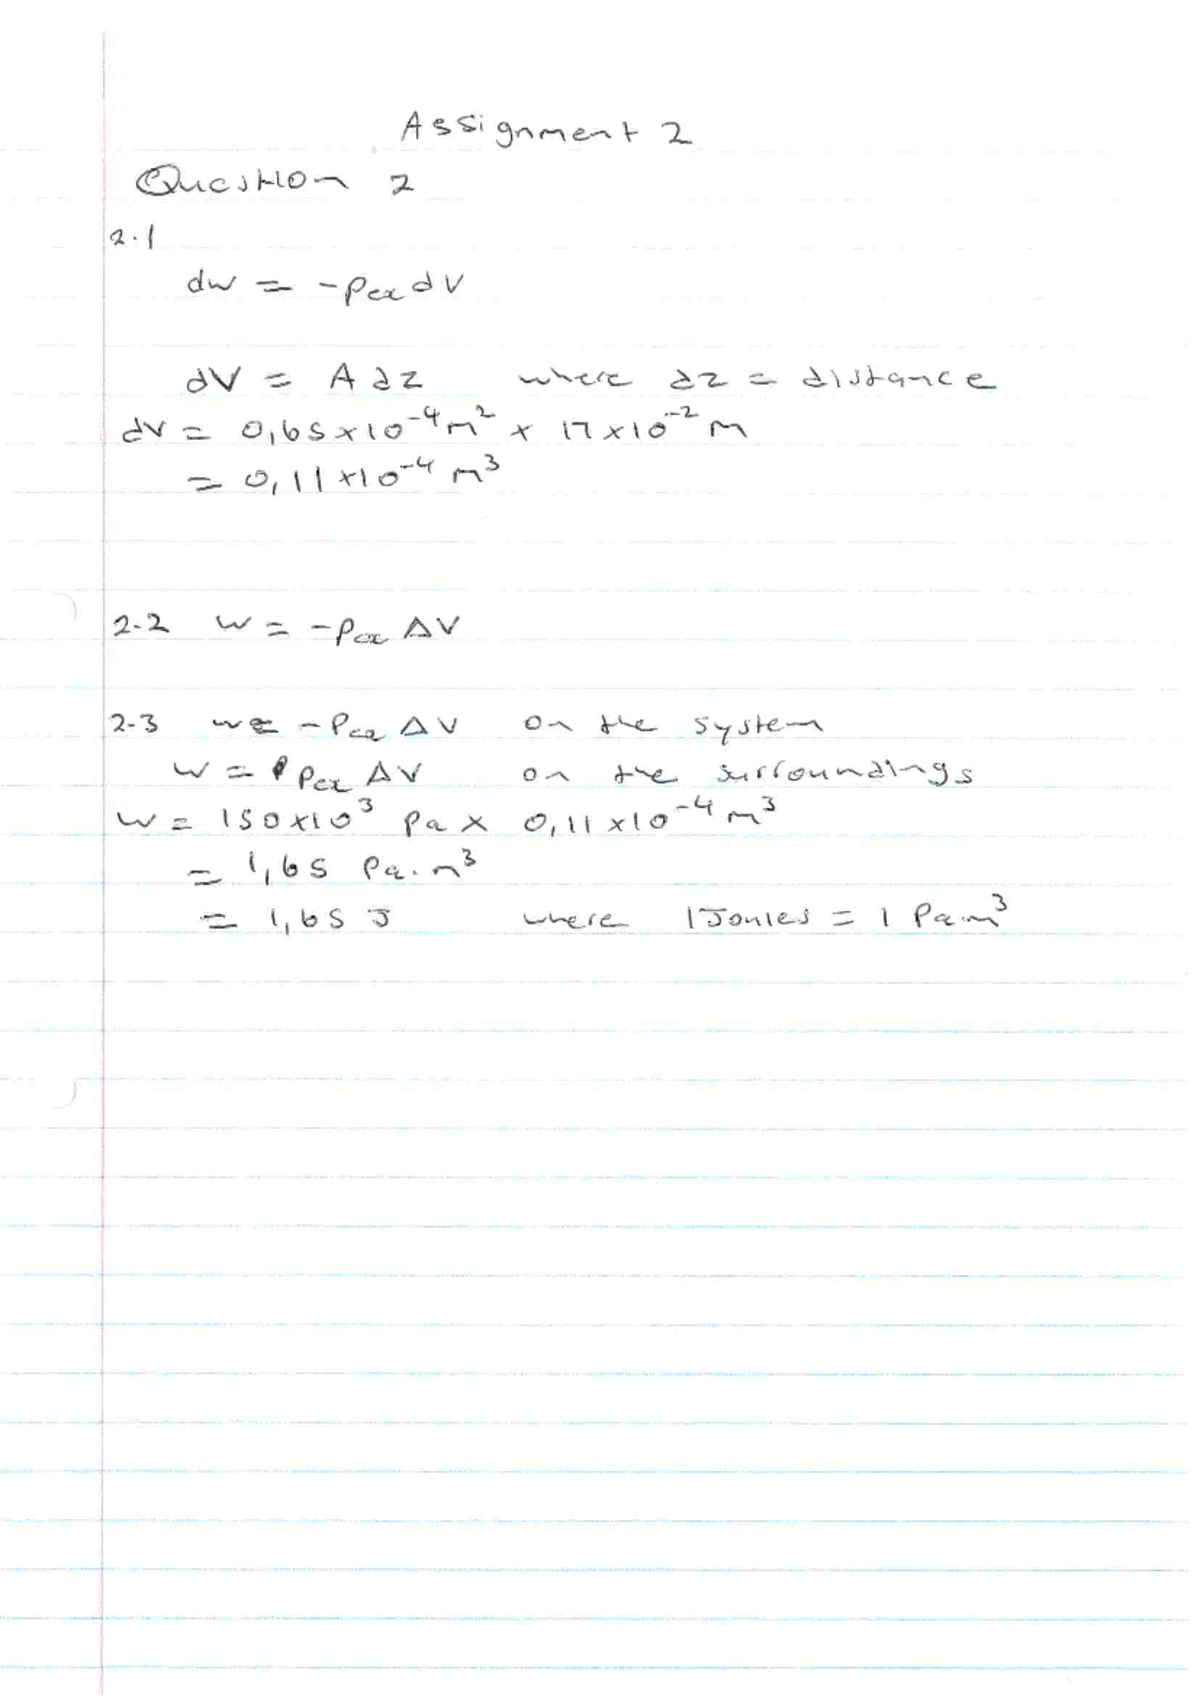 Assignment 2
Question 2
2.1
dw = -pex dV
dV = A dz where dz = distance
dV = 0,65 x 10⁻⁴ m² x 17 x 10⁻² m
= 0,11 x 10⁻⁴ m³
2.2 w = -pex ΔV
2.3 w = -pex ΔV on the system
w = pex ΔV on the surroundings
w = 150 x 10³ Pa x 0,11 x 10⁻⁴ m³
= 1,65 Pa.m³
= 1,65 J where 1 Joules = 1 Pa.m³